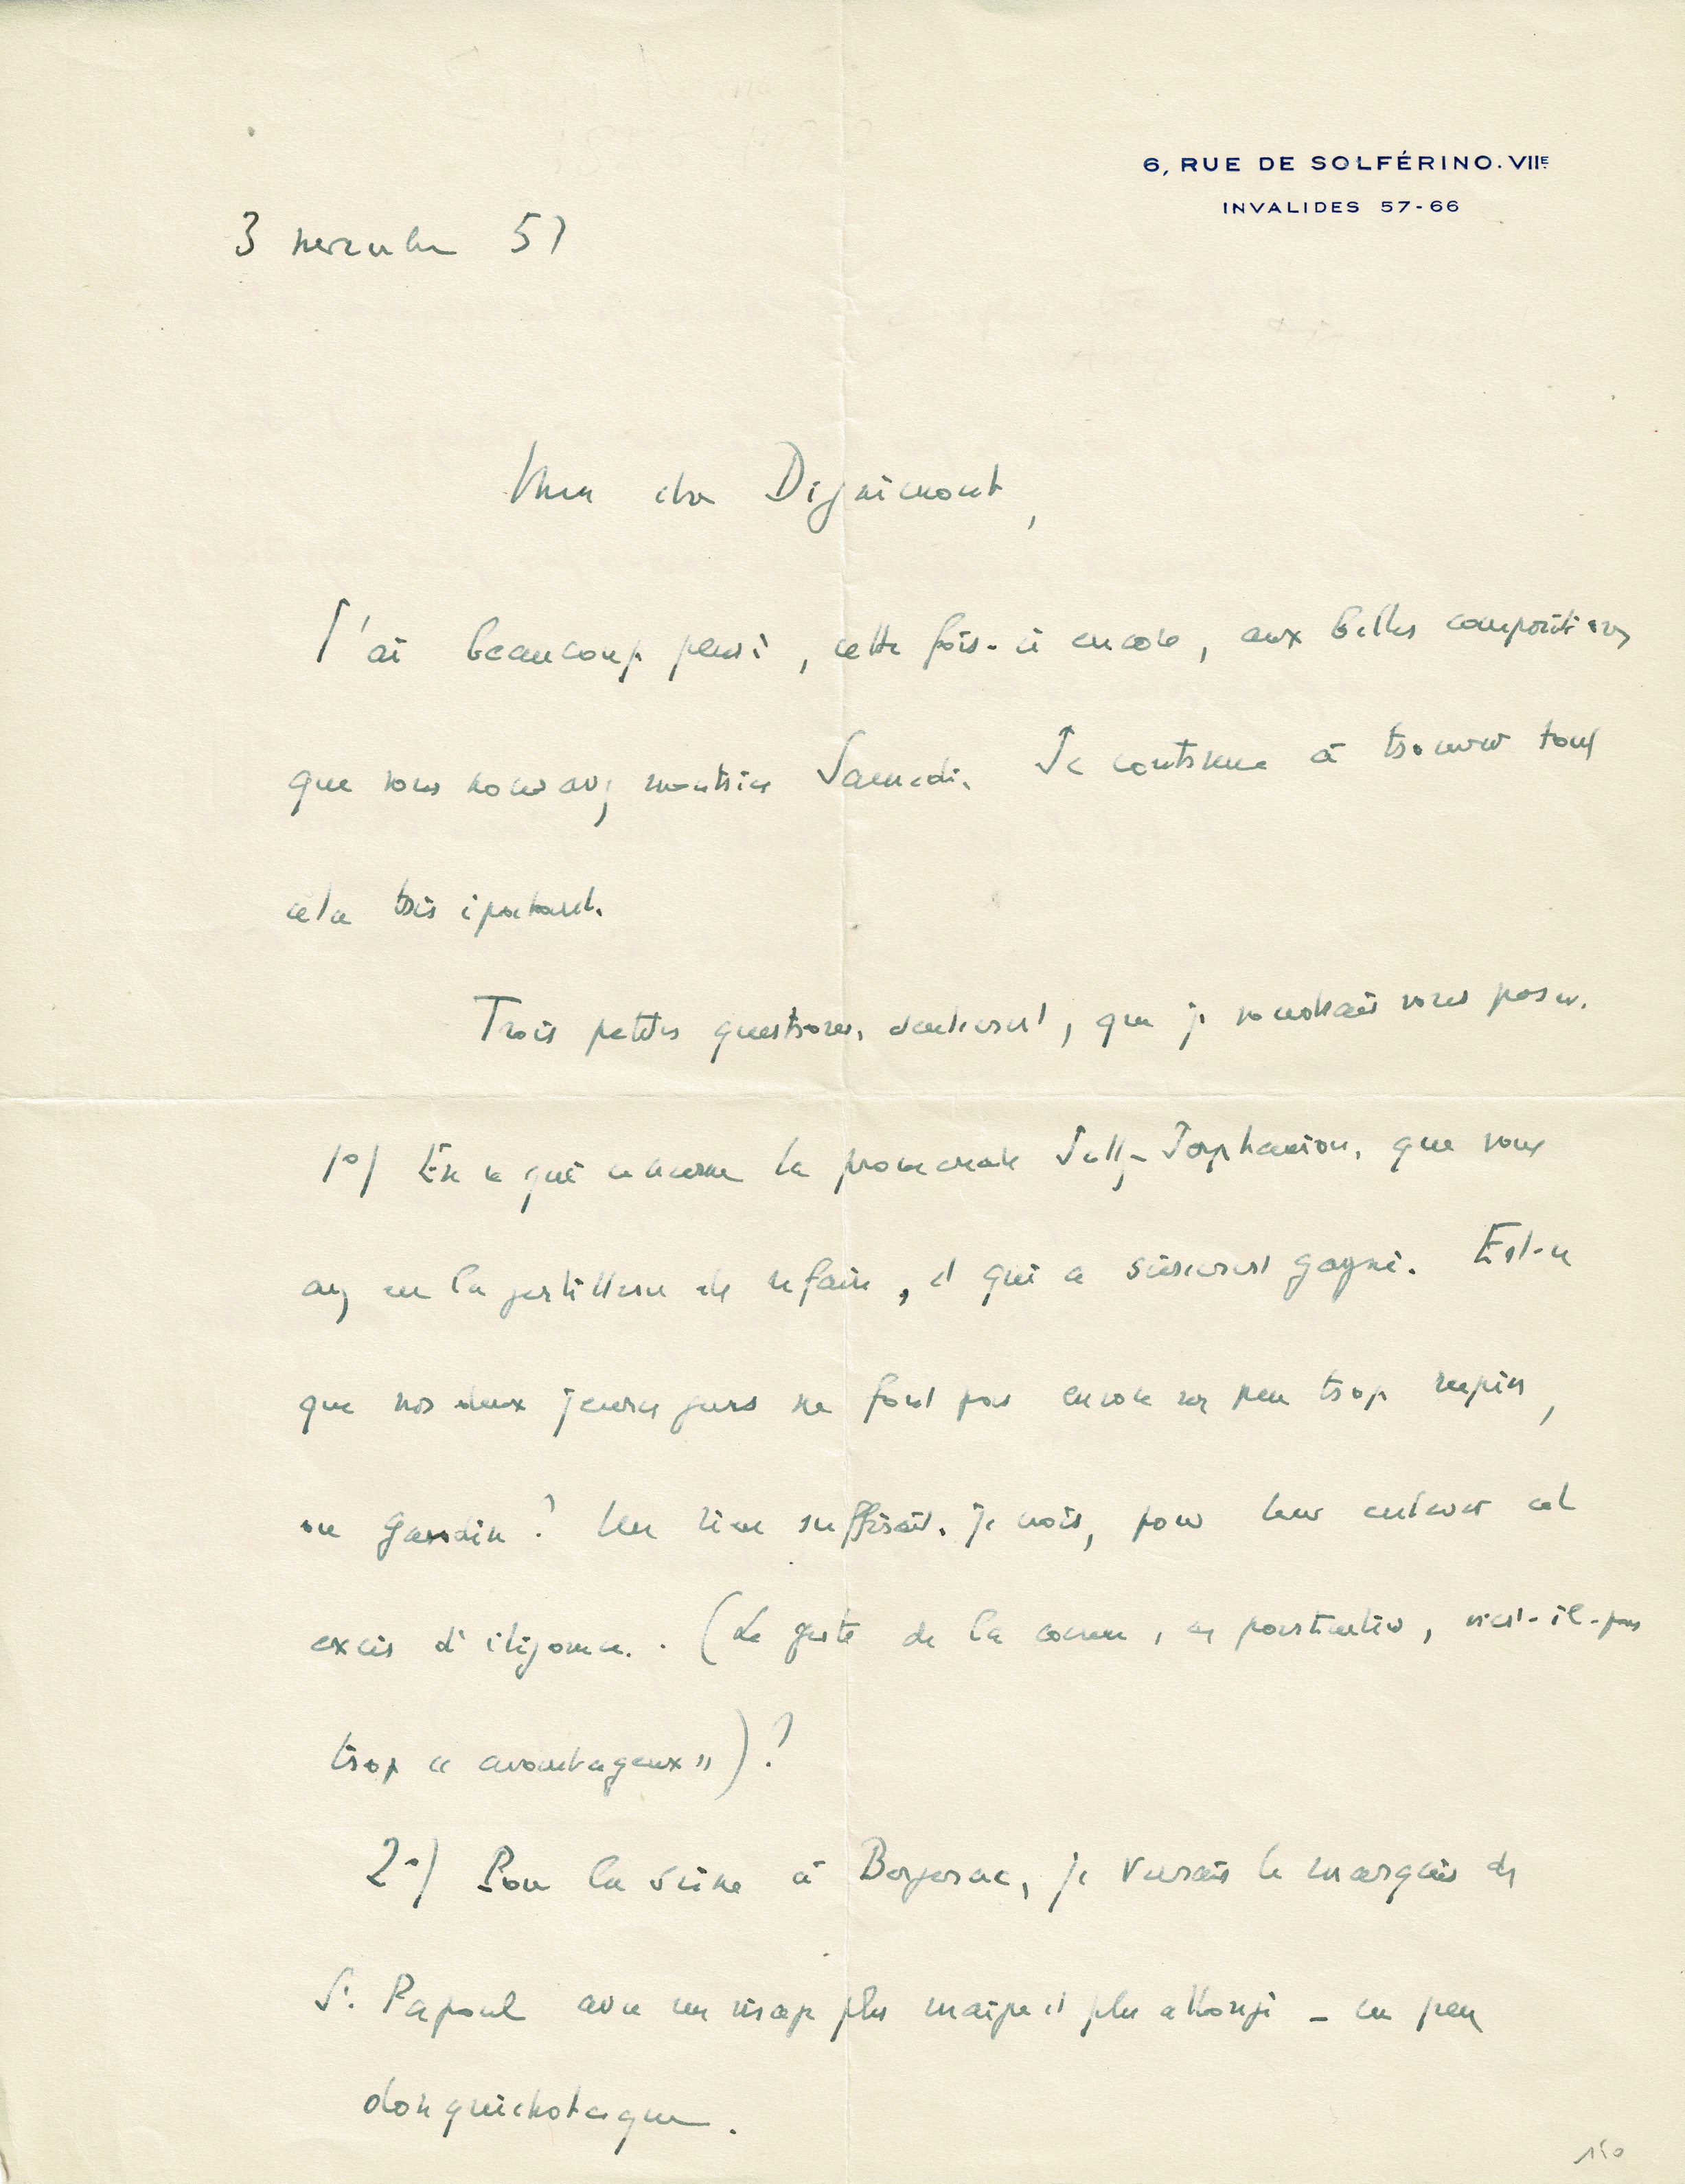 6, RUE DE SOLFÉRINO. VIIE
INVALIDES 57-66
3 novembre 57
Mon cher Dignimont,
J'ai beaucoup pensé, cette fois-ci encore, aux belles compositions
que vous nous avez montrées Samedi. Je continue à trouver tout
cela très épatant.
Trois petites questions, seulement, que je voudrais vous poser.
1º) En ce qui concerne la promenade Jally-Jerphanion, que vous
avez eu la gentillesse de refaire, et qui a sûrement gagné. Est-ce
que nos deux jeunes gens ne font pas encore un peu trop rupins,
ou gandin ? Un rien suffirait, je crois, pour leur enlever cet
excès d'élégance. (Le geste de la canne, en particulier, n'est-il-pas
trop « avantageux ») ?
2º) Pour la scène à Bergerac, je verrais le marquis de
St. Papoul avec un visage plus maigre et plus allongé – un peu
donquichotesque.
150